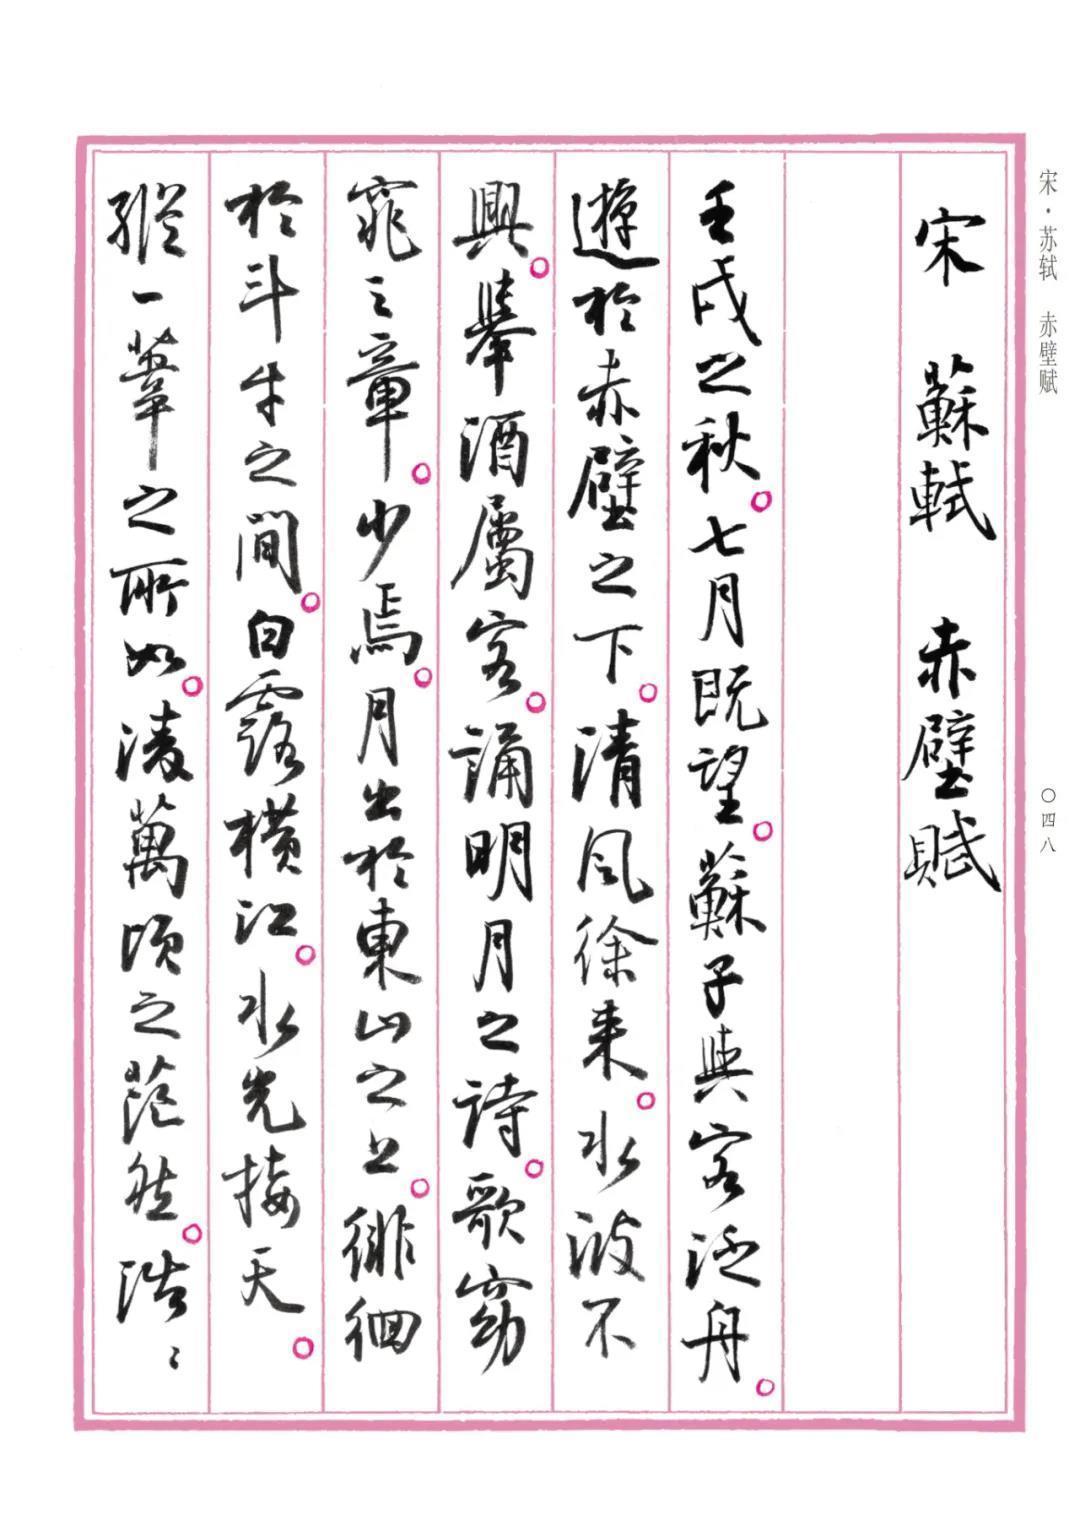 宋·苏轼 赤壁赋
〇四八
宋 蘇軾 赤壁賦
壬戌之秋。七月既望。蘇子與客泛舟。
遊於赤壁之下。清風徐來。水波不
興。舉酒屬客。誦明月之詩。歌窈
窕之章。少焉。月出於東山之上。徘徊
於斗牛之間。白露橫江。水光接天。
縱一葦之所如。凌萬頃之茫然。浩〻